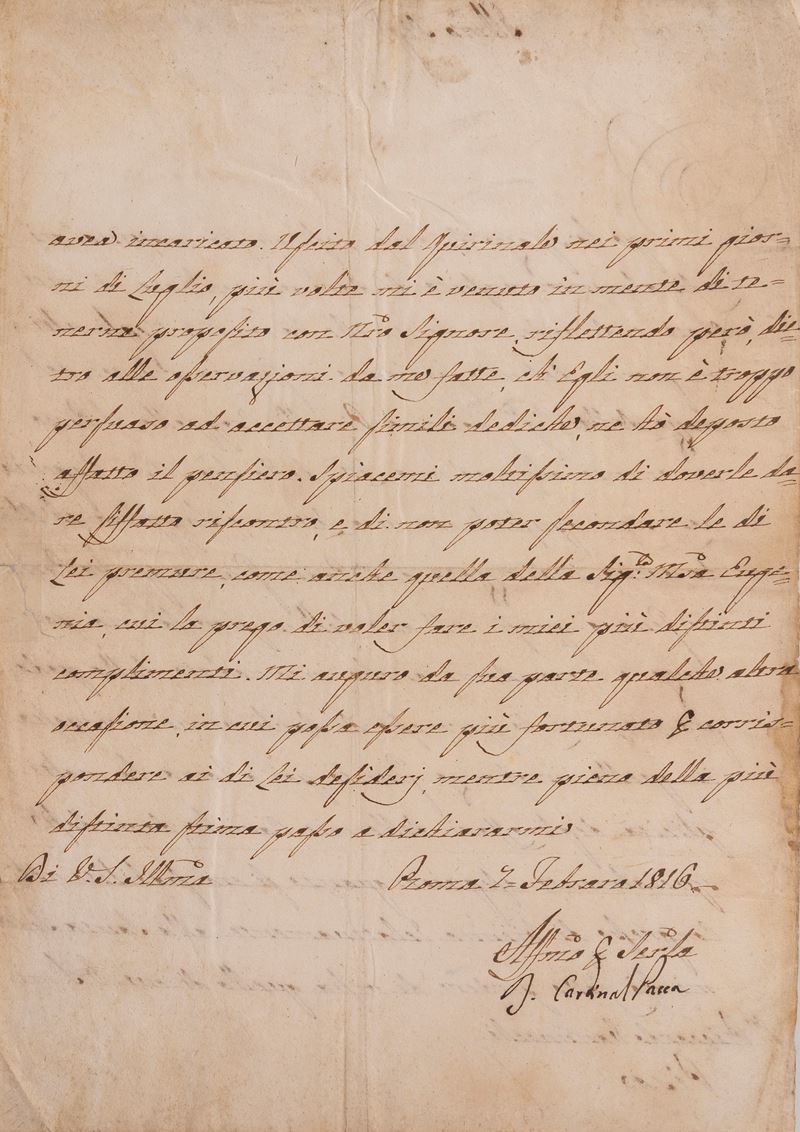 avea incaricato. Uscito dal Quirinale nei primi gior=
ni di Luglio, più volte mi è venuto in mente di te=
nerne proposito con Nrõ Signore, riflettendo però, die=
tro alle osservazioni da me fatte, ch' Egli non è troppo
persuaso ad accettare simili dediche, ne hò deposto
affatto il pensiero. Spiacemi moltissimo di doverle da=
re siffatto riscontro, e di non poter secondare le di
Lei premure, come anche quella della Sig.ra Mrã Euge=
nia, cui la prego di voler fare i miei più distinti
complimenti. Mi auguro da sua parte qualche altra
occasione, in cui possa essere più fortunato & corris=
pondere ai di Lei desiderj, mentre pieno della più
distinta stima passo a dichiararmi
Di V. S. Illma
Roma 2= Febraro 1816
Affmo & Serre
B. Cardinal Pacca